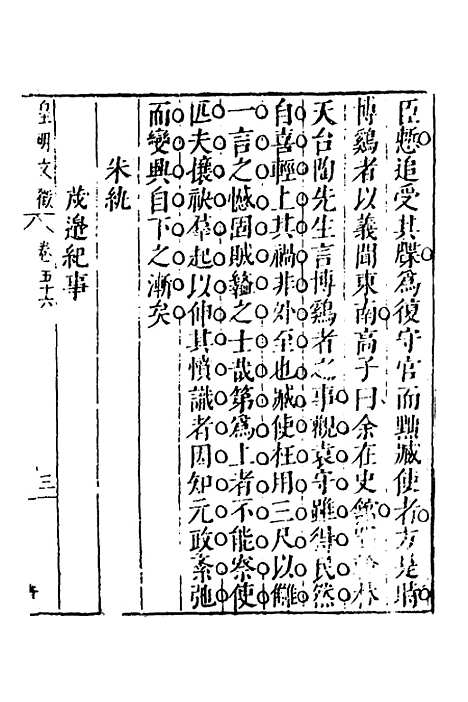 臣慙追受其牒為復守官而黜臧使者方是時
博鷄者以義聞東南高子曰余在史館聞翰林
天台陶先生言博鷄者之事觀袁守雖得民然
自喜輕上其禍非外至也臧使枉用三尺以讎
一言之憾固賊盭之士哉第為上者不能察使
匹夫攘袂羣起以伸其憤識者固知元政紊弛
而變興自下之漸矣
朱紈
茂邊紀事
皇明文徵 卷五十六 三